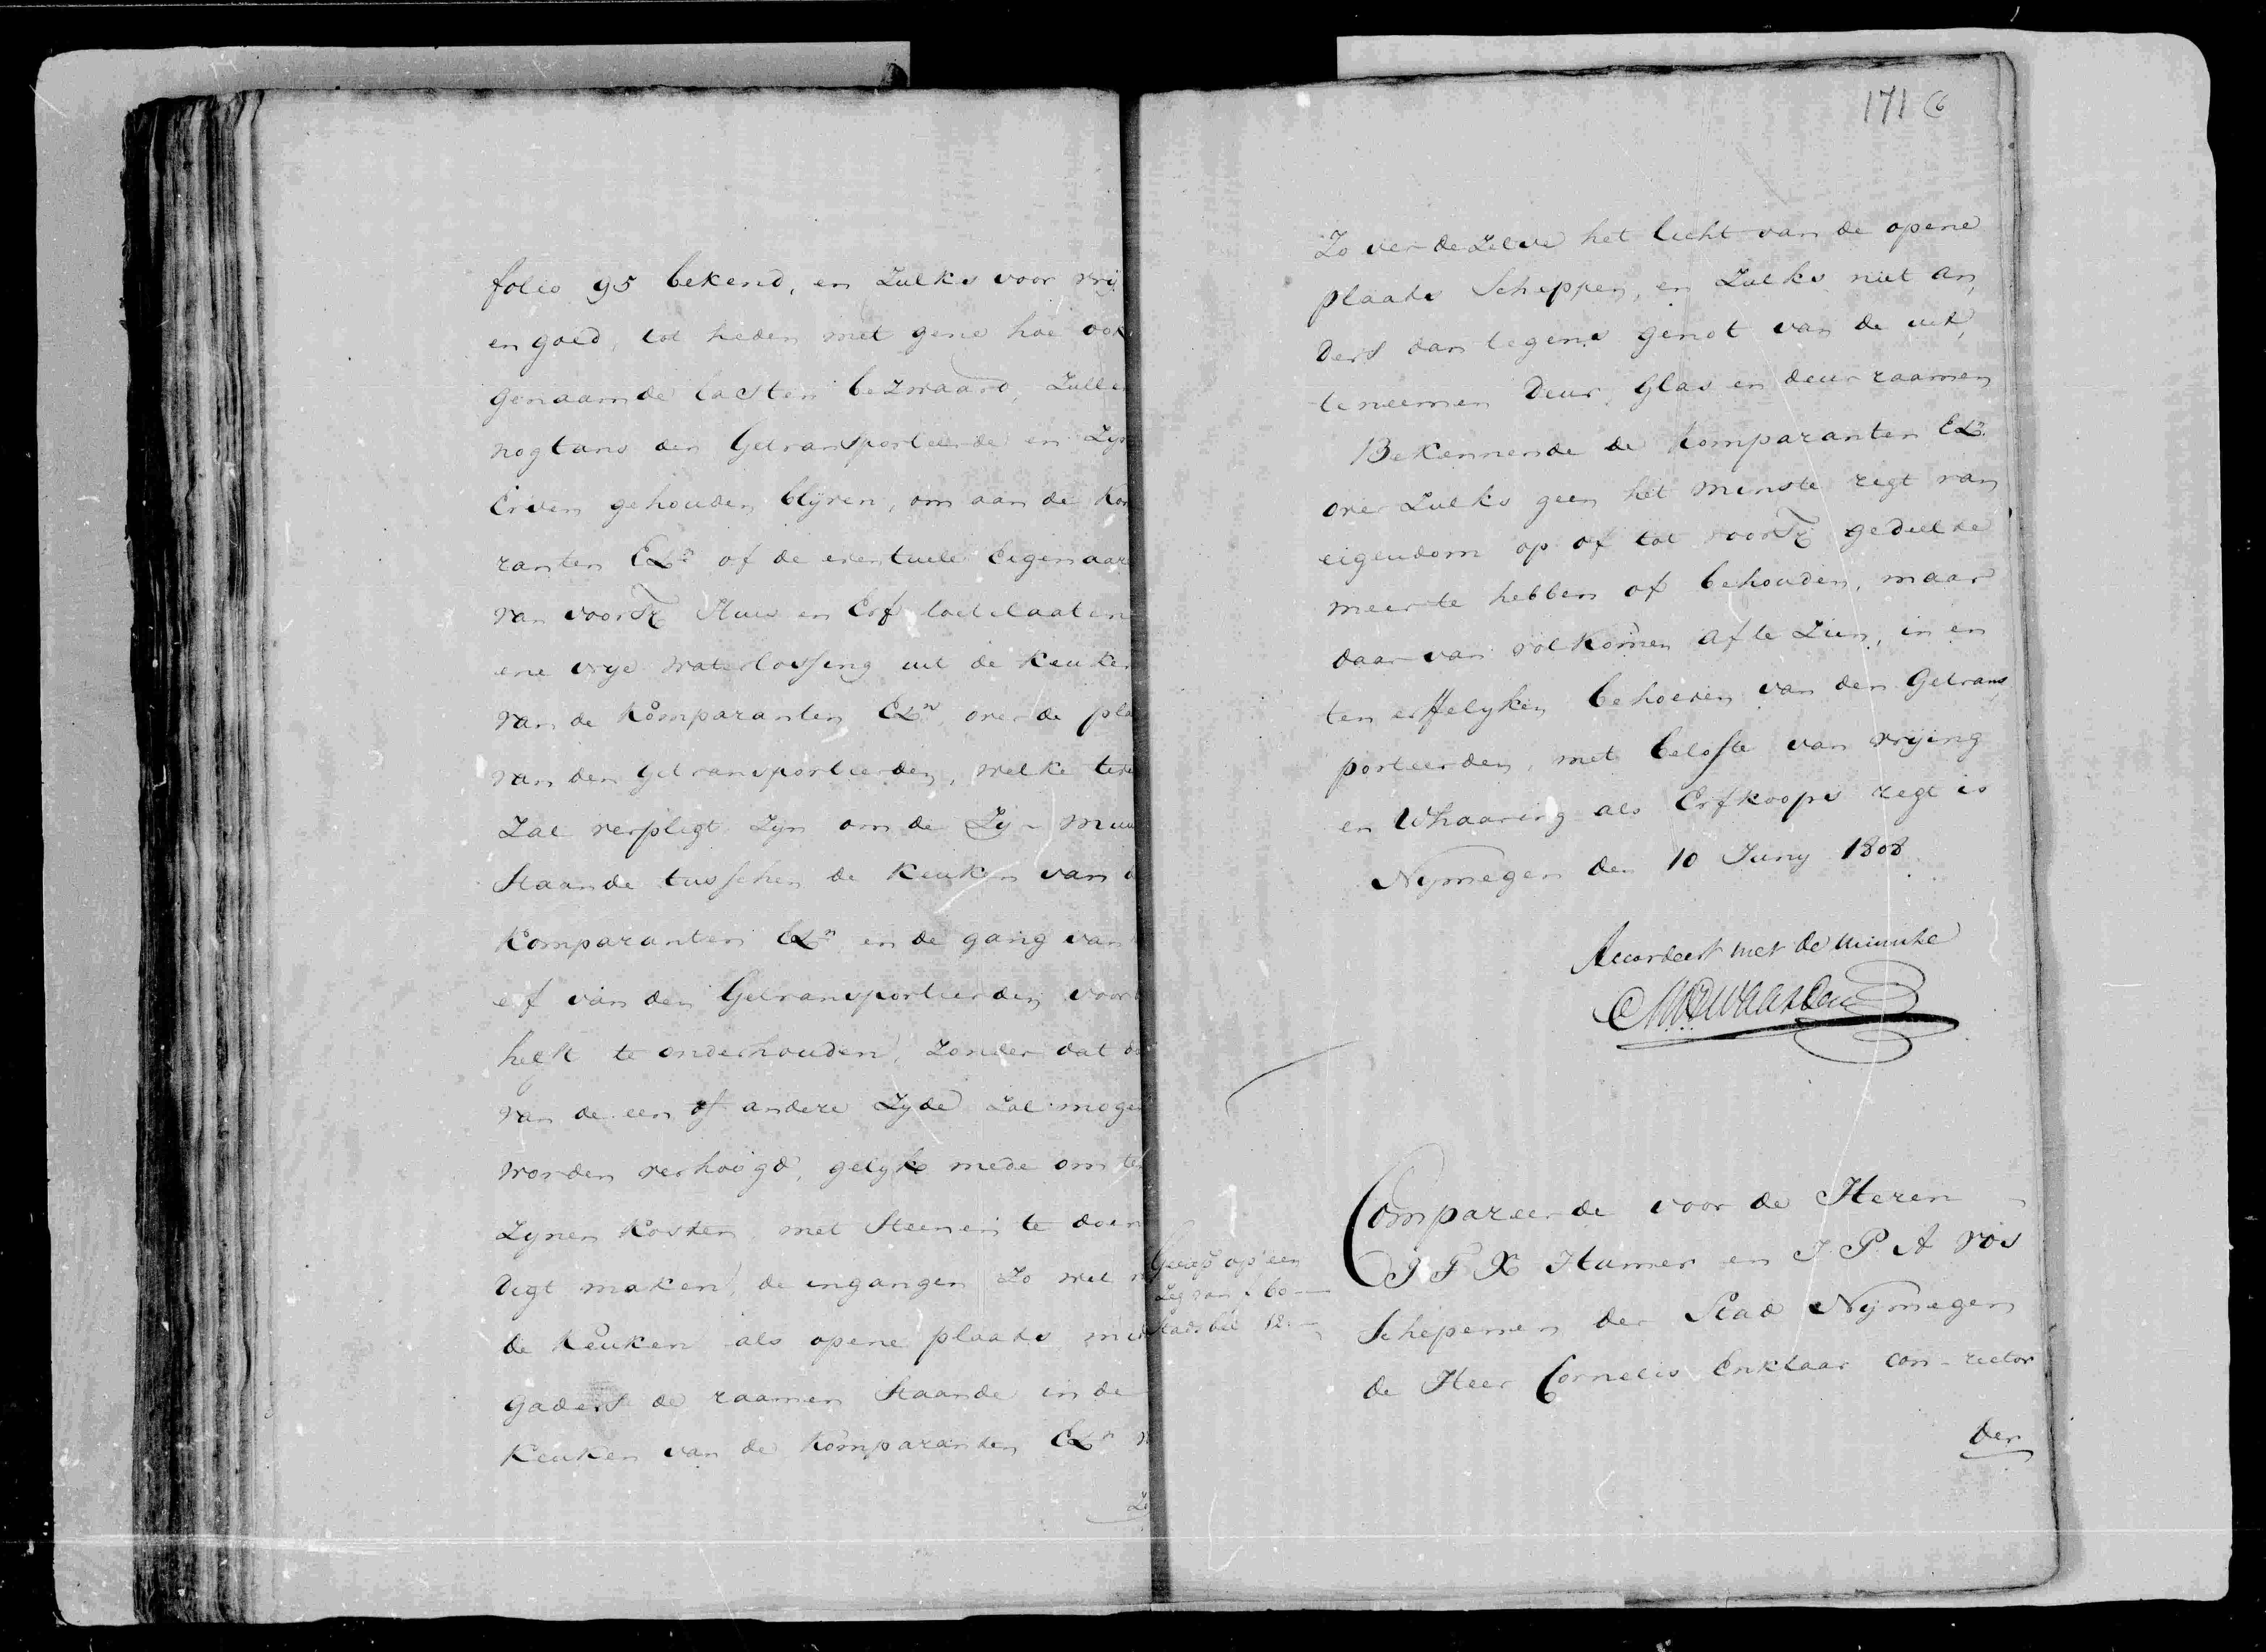 folio 95 bekend, en Zulks voor vrij
en goed, tot heden met gene hoe ook
genaamde lasten bezwaard, Zullen
nogtans den Getransporteerde en Zyn
Erven gehouden blyven, om aan de Kom
ranten ELn of de eventuele Eigenaar
van voorsz Huis en Erf toetelaaten
ene vrye waterlossing uit de keuken
van de Komparanten ELn over de pla
van den getransporteerden, welke
Zal verpligt Zyn om de Zy-muu
Staande tusschen de keuken van d
Komparanten ELn en de gang van
erf van den Getransporteerden voor
helft te onderhouden, Zonder dat d
van de een of andere Zyde Zal mogen
worden verhoogd, gelyk mede om te
Zynen Kosten met Steenen te doen
digt maken, de ingangen Zo wel
de keuken als opene plaats, mit
gaders de raamen Staande in de
Keuken van de Komparanten ELn
Zo
171
Zo ver dezelve het licht van de opene
plaats Scheppen, en Zulks niet an,
ders dan tegens genot van de uit,
teneemen Deur, Glas en deur raamen
Bekennende de Komparanten ELn
over Zulks geen het minste regt van
eigendom op of tot voorsz gedeelde
meer te hebben of behouden, maar
daar van volkomen af te Zien, in en
ten erffelyken behoeven van den Getrans,
porteerden, met belofte van vrijing
en Whaaring als Erfkoops regt is
Nymegen den 10 Juny 1808.
Accordeert met de minute
Compareerde voor de Heren
J F X Hamer en J. P. A Vos
Schepenen der Stad Nymegen
de Heer Cornelis Enklaar con-rector
der
op een
Zeg van f 60 —
12 —